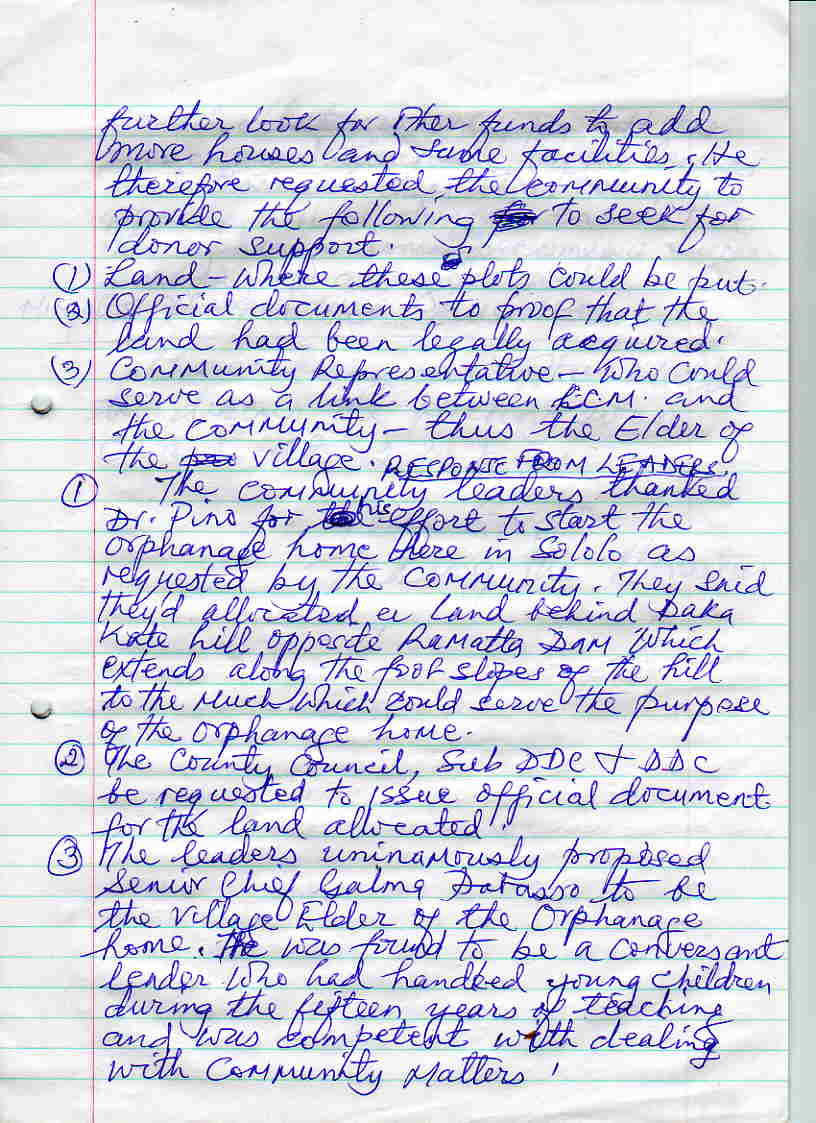 further look for Other funds to add
more houses and some facilities. He
therefore requested the community to
provide the following to seek for
donor support.
(1) Land - Where these plots could be put.
(2) Official documents to proof that the
land had been legally acquired.
(3) Community Representative - Who could
serve as a link between and
the community - thus the Elder of
the village. RESPONSE FROM LEADERS.
1 The community leaders thanked
Dr. Pino for his effort to start the
orphanage home here in Sololo as
requested by the community. They said
they'd allocated a land behind Daka
Kate hill opposite Ramatta Dam Which
extends along the foot slopes of the hill
to the Much Which could serve the purpose
of the orphanage home.
2 The County Council, Sub DDC & DDC
be requested to issue official document
for the land allocated.
3 The leaders uninamously proposed
Senior Chief Galma Dabasso to be
the village Elder of the Orphanage
home. He was found to be a conversant
leader Who had handled young children
during the fifteen years of teaching
and was competent with dealing
with Community Matters.